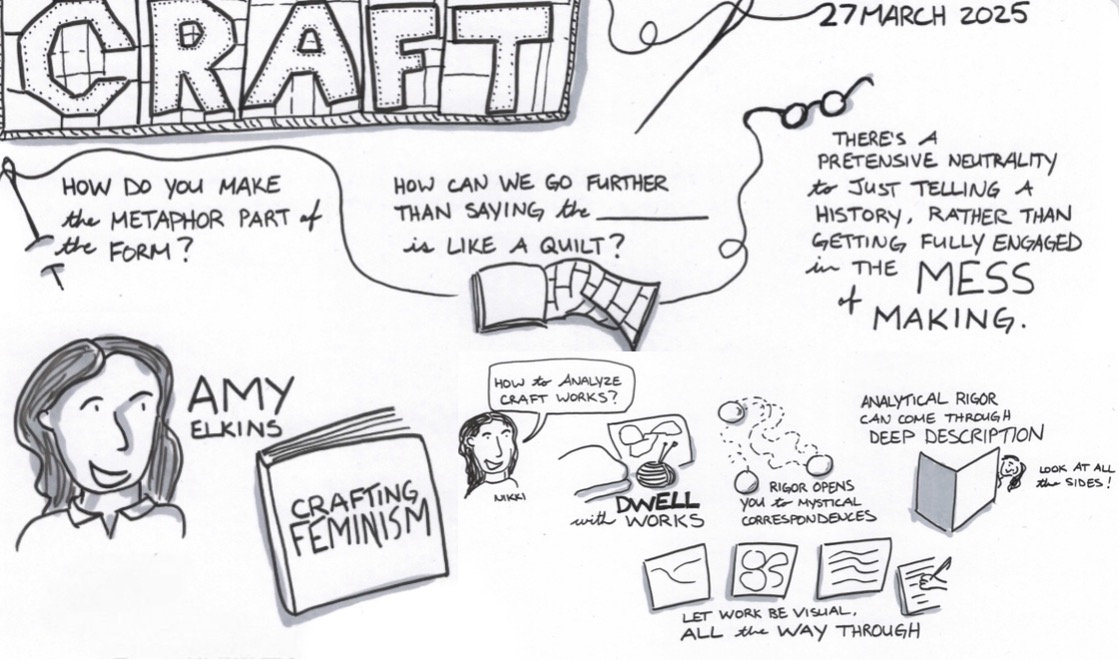 CRAFT
27 MARCH 2025
HOW DO YOU MAKE
the METAPHOR PART of
the FORM?
HOW CAN WE GO FURTHER
THAN SAYING the ________
is LIKE A QUILT?
THERE'S A
PRETENSIVE NEUTRALITY
to JUST TELLING A
HISTORY, RATHER THAN
GETTING FULLY ENGAGED
in THE MESS
of MAKING.
AMY
ELKINS
CRAFTING
FEMINISM
HOW to ANALYZE
CRAFT WORKS?
NIKKI
DWELL
with WORKS
RIGOR OPENS
YOU to MYSTICAL
CORRESPONDENCES
ANALYTICAL RIGOR
CAN COME THROUGH
DEEP DESCRIPTION
LOOK AT ALL
the SIDES!
LET WORK BE VISUAL,
ALL the WAY THROUGH